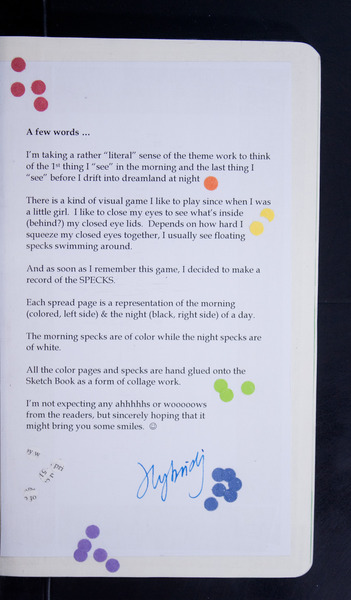 A few words ...
I'm taking a rather "literal" sense of the theme work to think
of the 1st thing I "see" in the morning and the last thing I
"see" before I drift into dreamland at night
There is a kind of visual game I like to play since when I was
a little girl. I like to close my eyes to see what's inside
(behind?) my closed eye lids. Depends on how hard I
squeeze my closed eyes together, I usually see floating
specks swimming around.
And as soon as I remember this game, I decided to make a
record of the SPECKS.
Each spread page is a representation of the morning
(colored, left side) & the night (black, right side) of a day.
The morning specks are of color while the night specks are
of white.
All the color pages and specks are hand glued onto the
Sketch Book as a form of collage work.
I'm not expecting any ahhhhhs or wooooows
from the readers, but sincerely hoping that it
might bring you some smiles. ☺